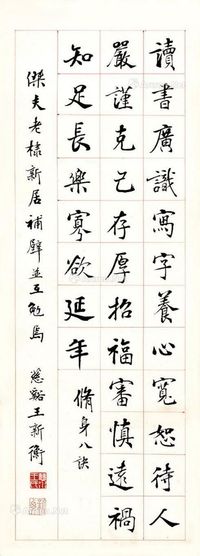 讀書廣識寫字養心寬恕待人
嚴謹克己存厚招福審慎遠禍
知足長樂寡欲延年 脩身八訣
傑夫老棣新居補壁並互勉焉 慈谿王新衡